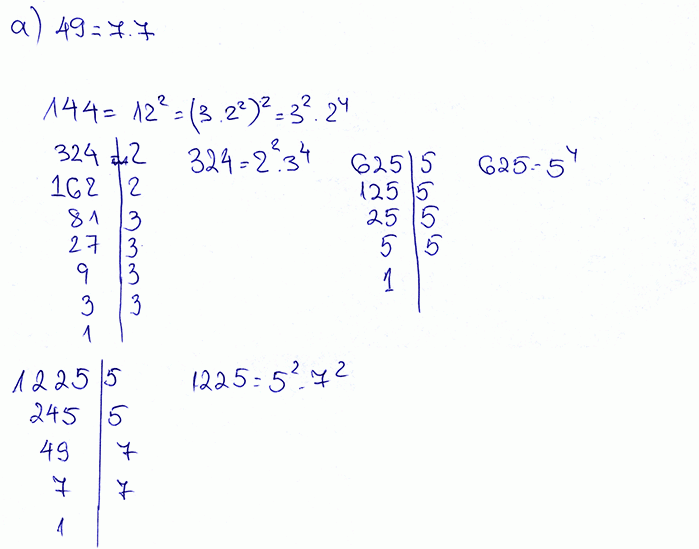 a) 49 = 7.7
144 = 12² = (3.2²)² = 3².2⁴
324 | 2
162 | 2
81 | 3
27 | 3
9 | 3
3 | 3
1
324 = 2².3⁴
625 | 5
125 | 5
25 | 5
5 | 5
1
625 = 5⁴
1225 | 5
245 | 5
49 | 7
7 | 7
1
1225 = 5².7²